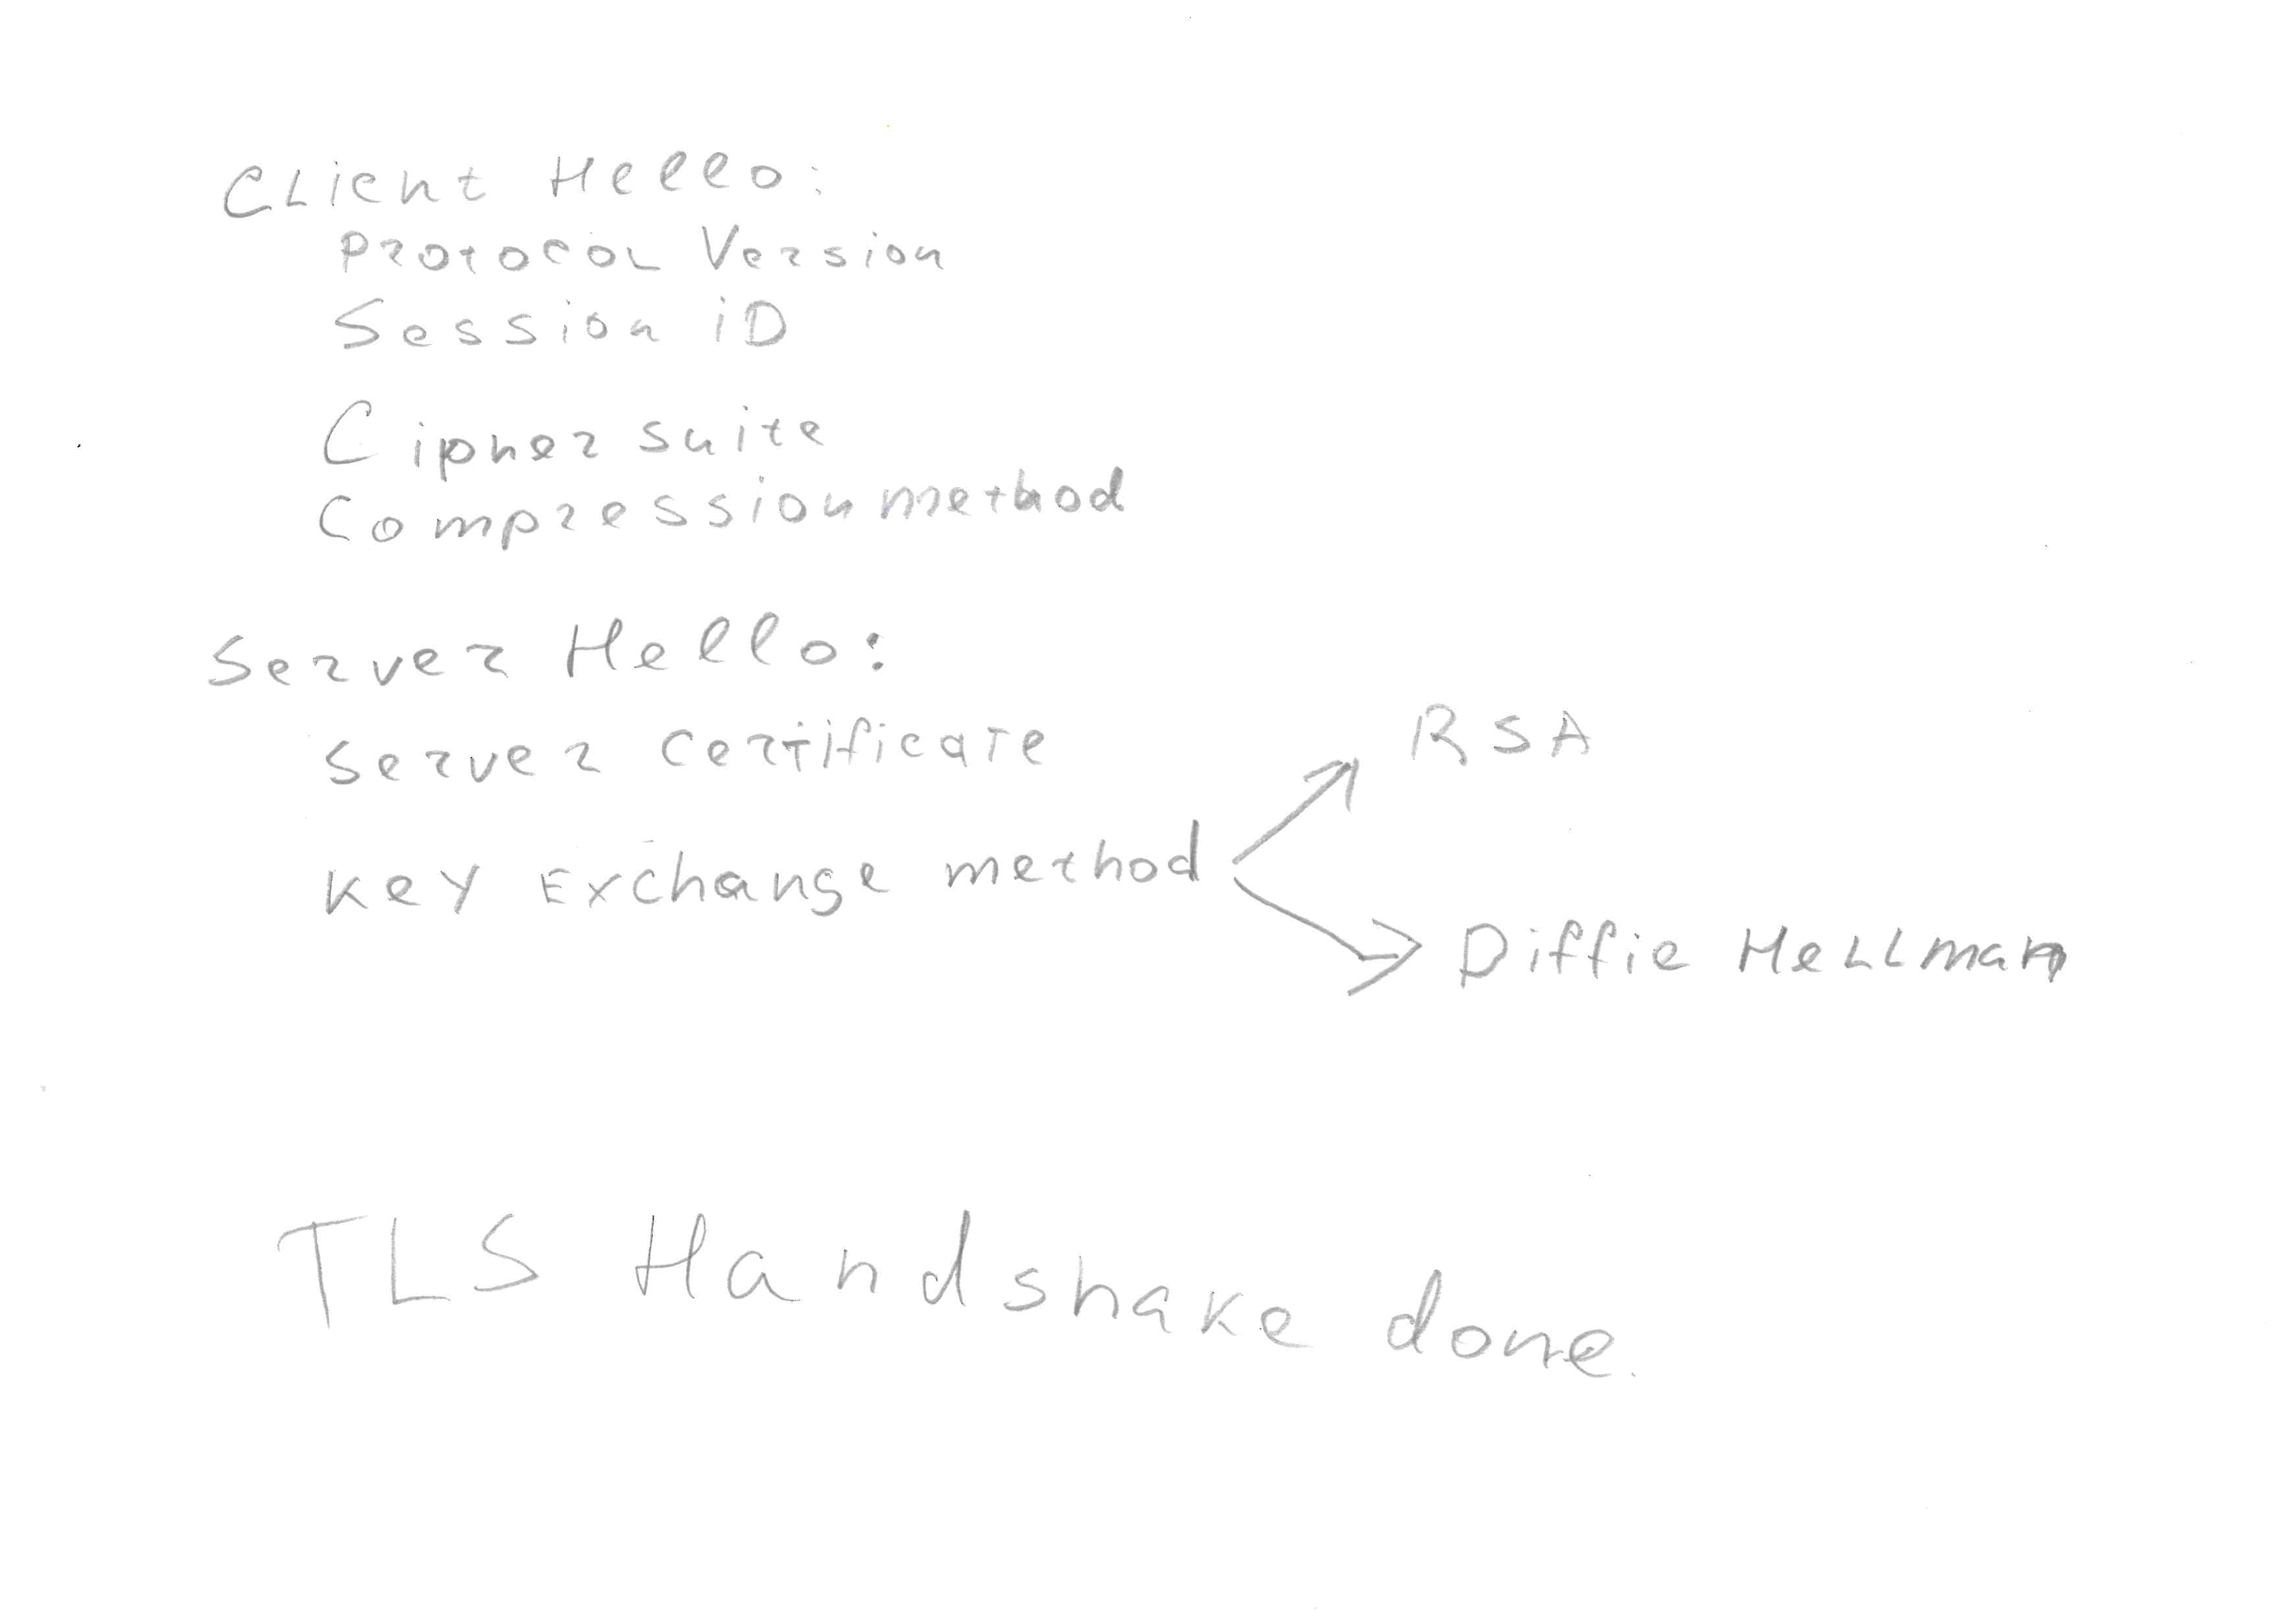 Client Hello:
Protocol Version
Session iD
Cipher suite
Compression method
Server Hello:
Server Certificate
RSA
Key Exchange method
Diffie Hellman
TLS Handshake done.